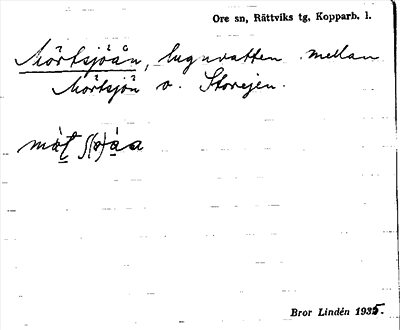 Ore sn, Rättviks tg, Kopparb. l.
Mörtsjöån, lugnvatten mellan
Mörtsjön o. Storejen.
Bror Lindén 1935.